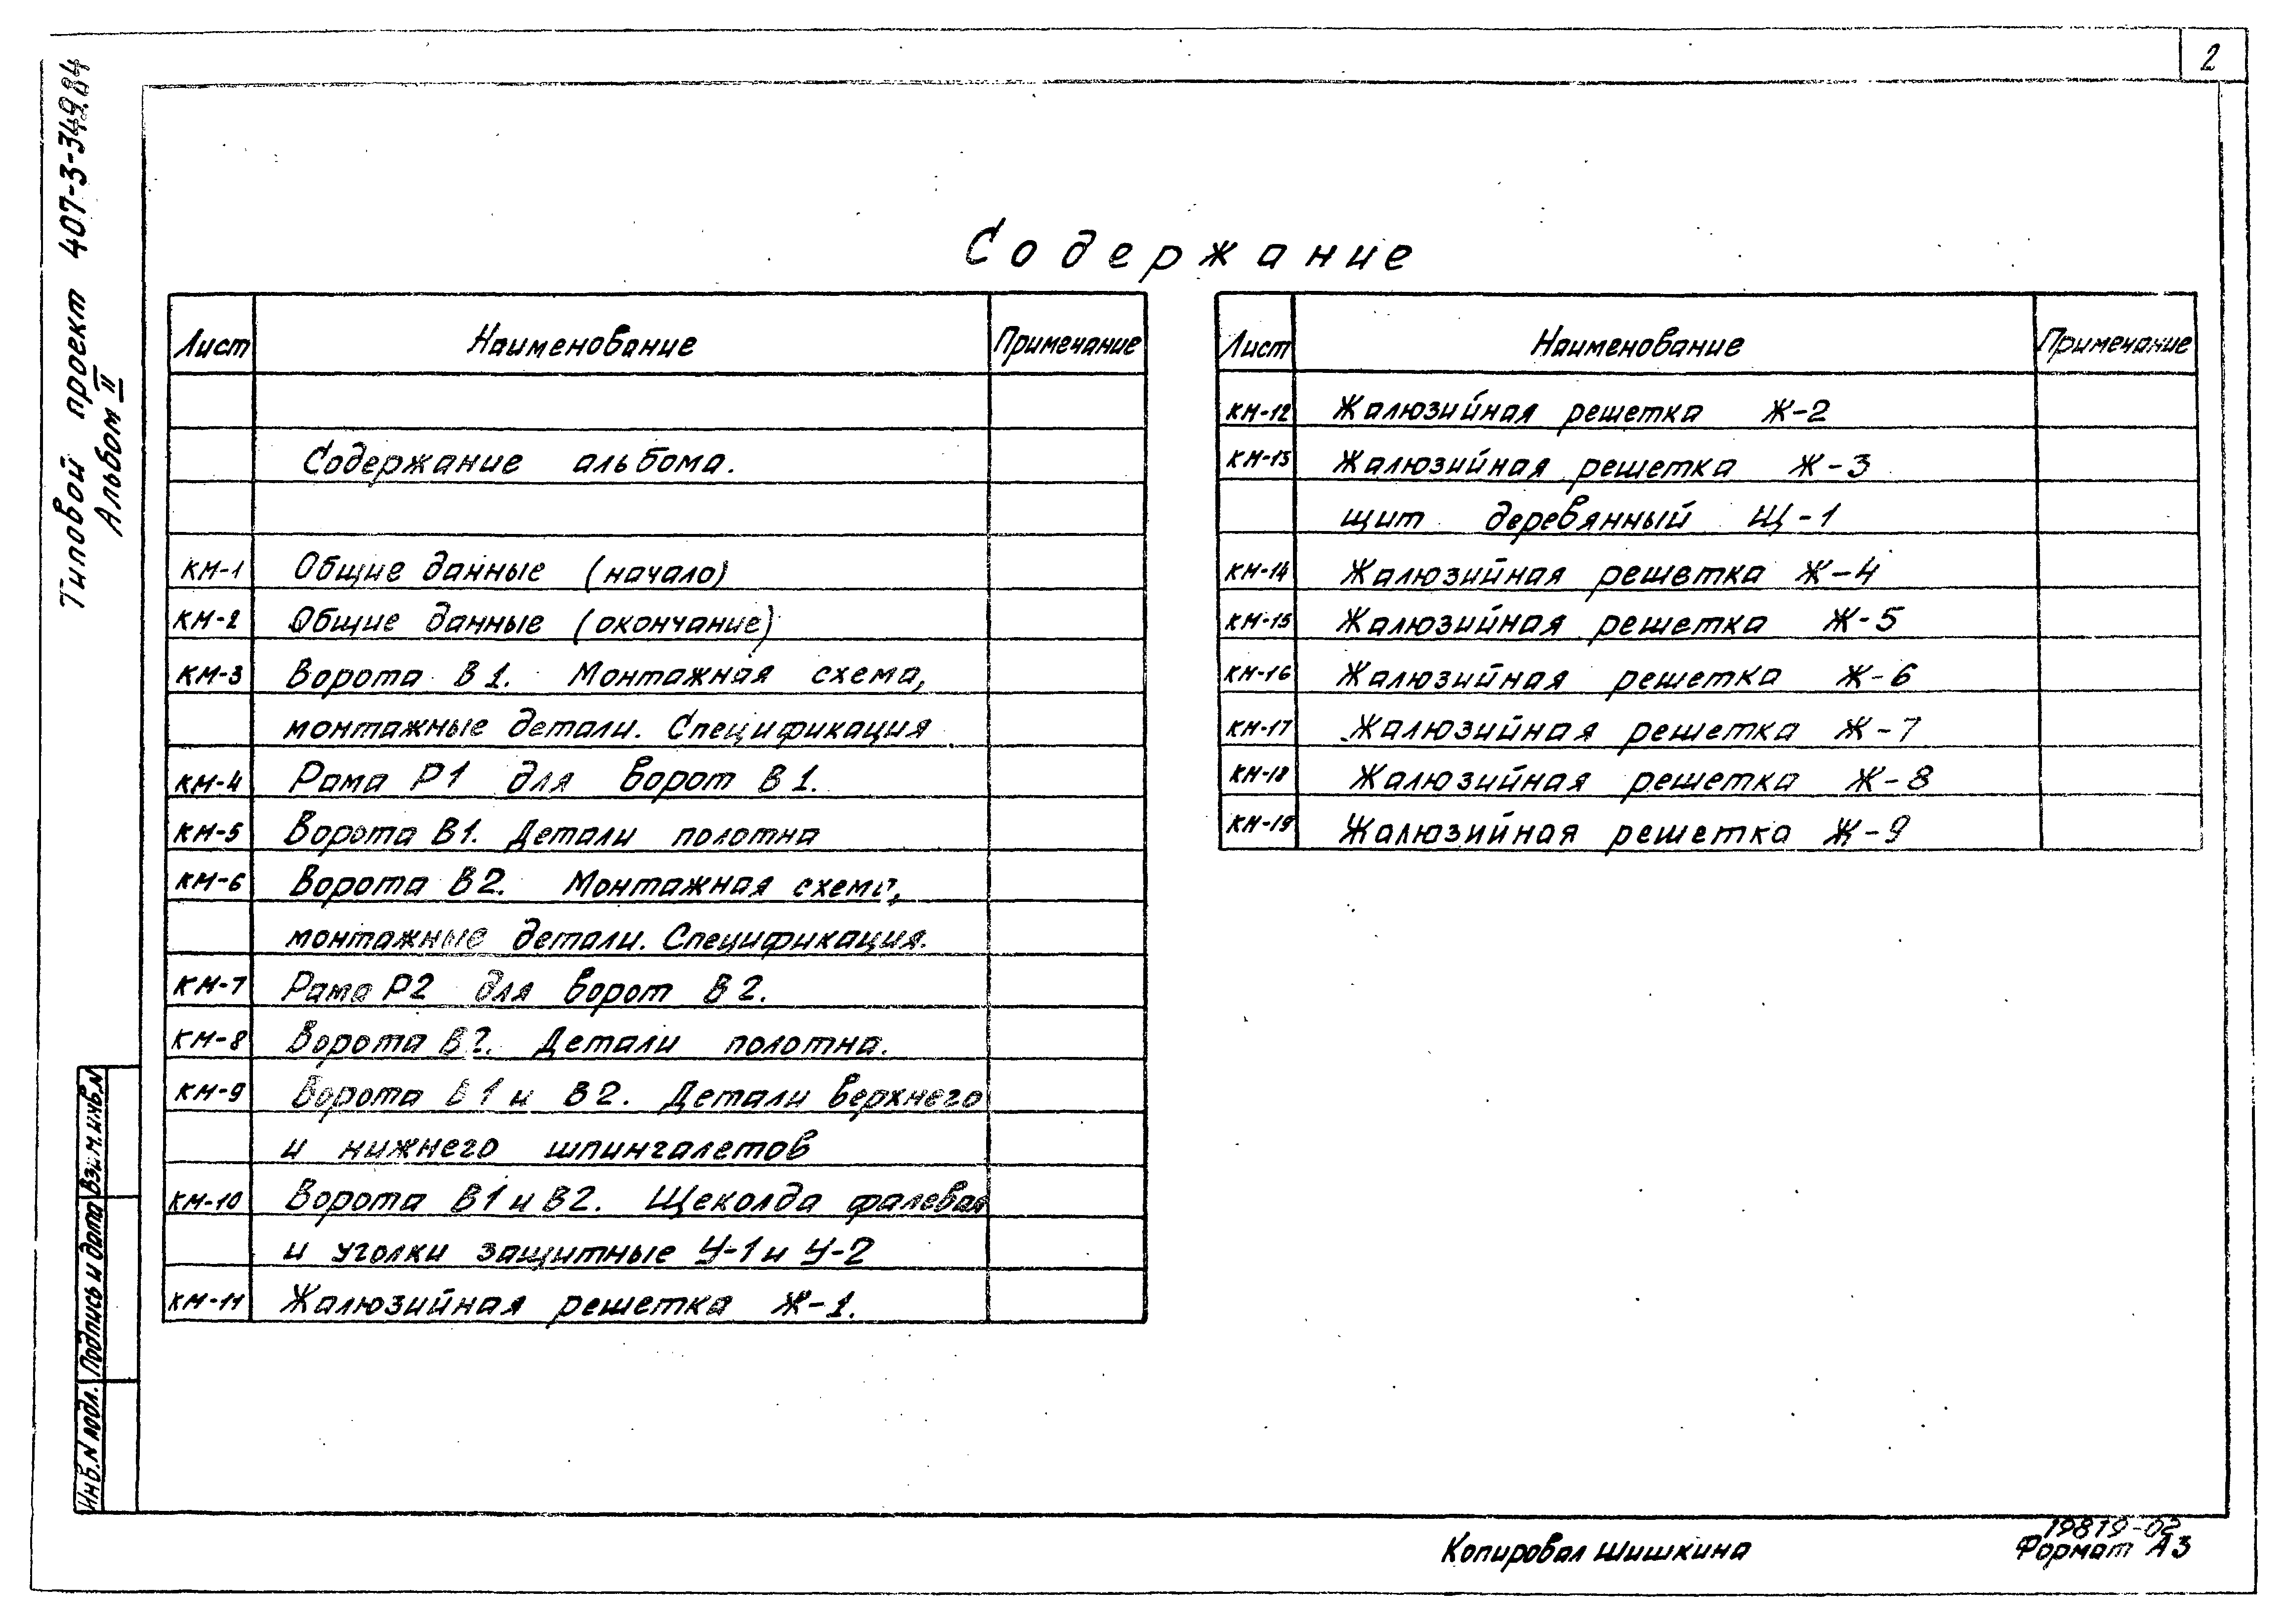 2
Типовой проект 407-3-349.84
Альбом II
Содержание
Лист Наименование Примечание
Содержание альбома.
КМ-1 Общие данные (начало)
КМ-2 Общие данные (окончание)
КМ-3 Ворота В1. Монтажная схема,
монтажные детали. Спецификация
КМ-4 Рама Р1 для ворот В1.
КМ-5 Ворота В1. Детали полотна
КМ-6 Ворота В2. Монтажная схема,
монтажные детали. Спецификация.
КМ-7 Рама Р2 для ворот В2.
КМ-8 Ворота В2. Детали полотна.
КМ-9 Ворота В1 и В2. Детали верхнего
и нижнего шпингалетов
КМ-10 Ворота В1 и В2. Щеколда фалевая
и уголки защитные У-1 и У-2
КМ-11 Жалюзийная решетка Ж-1.
Лист Наименование Примечание
КМ-12 Жалюзийная решетка Ж-2
КМ-13 Жалюзийная решетка Ж-3
щит деревянный Щ-1
КМ-14 Жалюзийная решетка Ж-4
КМ-15 Жалюзийная решетка Ж-5
КМ-16 Жалюзийная решетка Ж-6
КМ-17 Жалюзийная решетка Ж-7
КМ-18 Жалюзийная решетка Ж-8
КМ-19 Жалюзийная решетка Ж-9
Взам.инв.N
Подпись и дата
Инв.N подл.
Копировал Шишкина
19819-02
Формат А3